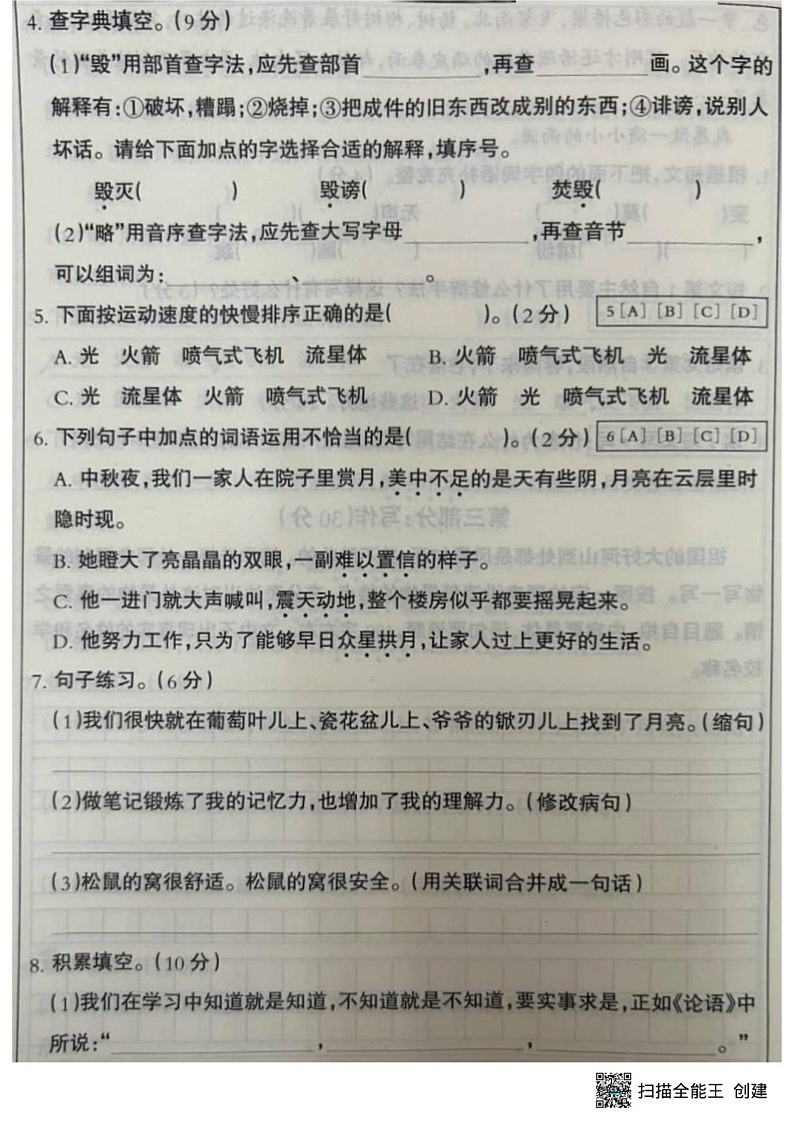 4. 查字典填空。(9分)
(1)“毁”用部首查字法,应先查部首___________,再查___________画。这个字的
解释有:①破坏,糟蹋;②烧掉;③把成件的旧东西改成别的东西;④诽谤,说别人
坏话。请给下面加点的字选择合适的解释,填序号。
毁灭(  ) 毁谤(  ) 焚毁(  )
(2)“略”用音序查字法,应先查大写字母___________,再查音节___________,
可以组词为:___________、___________。
5. 下面按运动速度的快慢排序正确的是(  )。(2分) 5[A] [B] [C] [D]
A. 光 火箭 喷气式飞机 流星体 B. 火箭 喷气式飞机 光 流星体
C. 光 流星体 火箭 喷气式飞机 D. 火箭 光 喷气式飞机 流星体
6. 下列句子中加点的词语运用不恰当的是(  )。(2分) 6[A] [B] [C] [D]
A. 中秋夜,我们一家人在院子里赏月,美中不足的是天有些阴,月亮在云层里时
隐时现。
B. 她瞪大了亮晶晶的双眼,一副难以置信的样子。
C. 他一进门就大声喊叫,震天动地,整个楼房似乎都要摇晃起来。
D. 他努力工作,只为了能够早日众星拱月,让家人过上更好的生活。
7. 句子练习。(6分)
(1)我们很快就在葡萄叶儿上、瓷花盆儿上、爷爷的锨刃儿上找到了月亮。(缩句)
(2)做笔记锻炼了我的记忆力,也增加了我的理解力。(修改病句)
(3)松鼠的窝很舒适。松鼠的窝很安全。(用关联词合并成一句话)
8. 积累填空。(10分)
(1)我们在学习中知道就是知道,不知道就是不知道,要实事求是,正如《论语》中
所说:“___________,___________,___________。”
扫描全能王 创建